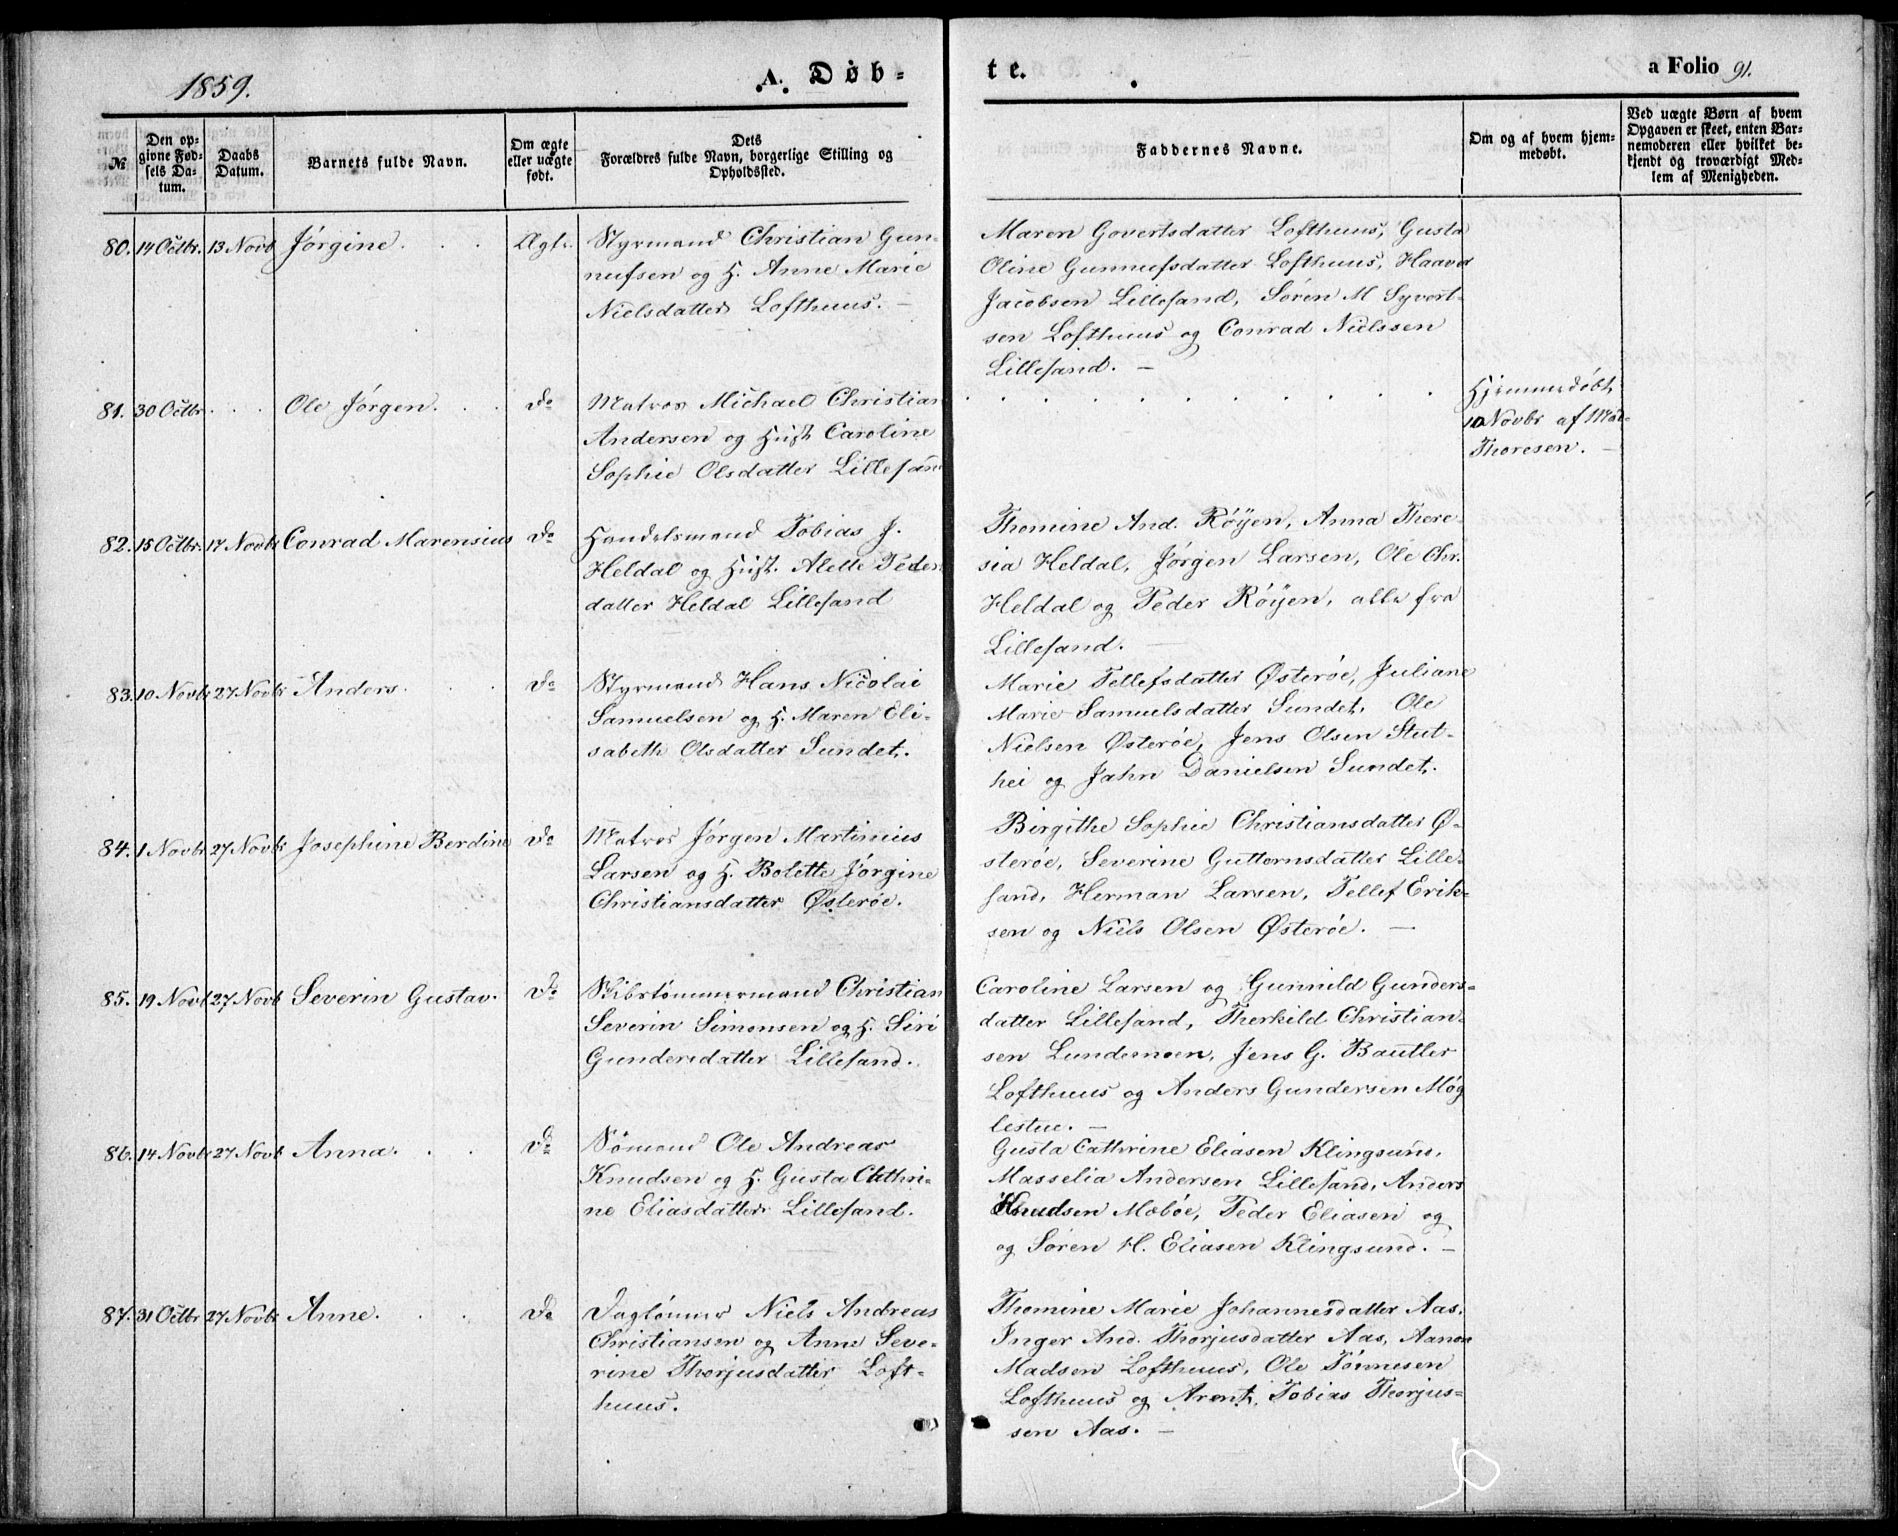 1859.
A. Døb-
te.
a Folio 91.
№
Den op-
givne Fød-
sels Da-
tum.
Daabs
Datum.
Barnets fulde Navn.
Om ægte
eller uægte
født.
Dets
Forældres fulde Navn, borgerlige Stilling og
Opholdssted.
Faddernes Navne.
Om og af hvem hjem-
medøbt.
Ved uægte Børn af hvem
Opgaven er skeet, enten Bar-
nemoderen eller hvilket be-
kjendt og troværdigt Med-
lem af Menigheden.
80. 14 Octbr. 13 Novb Jörgine. Ægte. Styrmand Christian Gun-
nufsen og H. Anne Marie
Nielsdatter Lofthuus. –
Maren Govertsdatter Lofthuus, Gusta
Oline Gunnufsdatter Lofthuus, Haavor
Jacobsen Lillesand, Søren M Syvert-
sen Lofthuus og Conrad Nielssen
Lillesand. –
81. 30 Octbr. Ole Jörgen. do Matros Michael Christian
Andersen og Hust. Caroline
Sophie Olsdatter Lillesand
Hjemmedöbt
10 Novbr af Mad.
Thoresen. –
82. 15 Octbr. 17 Novbr Conrad Marensius do Handelsmand Tobias J.
Heldal og Hust. Alette Peders
datter Heldal Lillesand
Thomine And. Röyen, Anna There-
sia Heldal, Jörgen Larsen, Ole Chr.
Heldal og Peder Röyen, alle fra
Lillesand. –
83. 10 Novbr 27 Novbr Anders. do Styrmand Hans Nicolai
Samuelsen og H. Maren Eli-
sabeth Olsdatter Sundet.
Marie Tellefsdatter Østeröe, Juliane
Marie Samuelsdatter Sundet, Ole
Nielsen Østeröe, Jens Olsen Stut-
hei og Jahn Danielsen Sundet.
84. 1 Novbr 27 Novbr Josephine Berdine do Matros Jörgen Martinius
Larsen og H. Bolette Jörgine
Christiansdatter Østeröe.
Birgithe Sophie Christiansdatter Ø-
steröe, Severine Guttormsdatter Lille-
sand, Herman Larsen, Tellef Erik-
sen og Niels Olsen Østeröe. –
85. 19 Novb 27 Novb Severin Gustav. do Skibstömmermand Christian
Severin Simonsen og H. Siri
Gundersdatter Lillesand.
Caroline Larsen og Gunnild Gunders-
datter Lillesand, Therkild Christian-
sen Lundemoen, Jens G. Bautler
Lofthuus og Anders Gundersen Mög
lestue. –
86. 14 Novbr 27 Novb Anna. do Sömand Ole Andreas
Knudsen og H. Gusta Cathri-
ne Eliasdatter Lillesand.
Gusta Cathrine Eliasen Klingsund,
Masselia Andersen Lillesand, Anders
Knudsen Moböe, Peder Eliasen og
og Søren H. Eliasen Klingsund. –
87. 31 Octbr 27 Novbr Anne. do Daglönner Niels Andreas
Christiansen og Anne Seve-
rine Thorjusdatter Loft-
huus.
Thomine Marie Johannesdatter Aas,
Inger And. Thorjusdatter Aas, Aanon
Madsen Lofthuus, Ole Tönnesen
Lofthuus og Arent Tobias Thorjus-
sen Aas. –